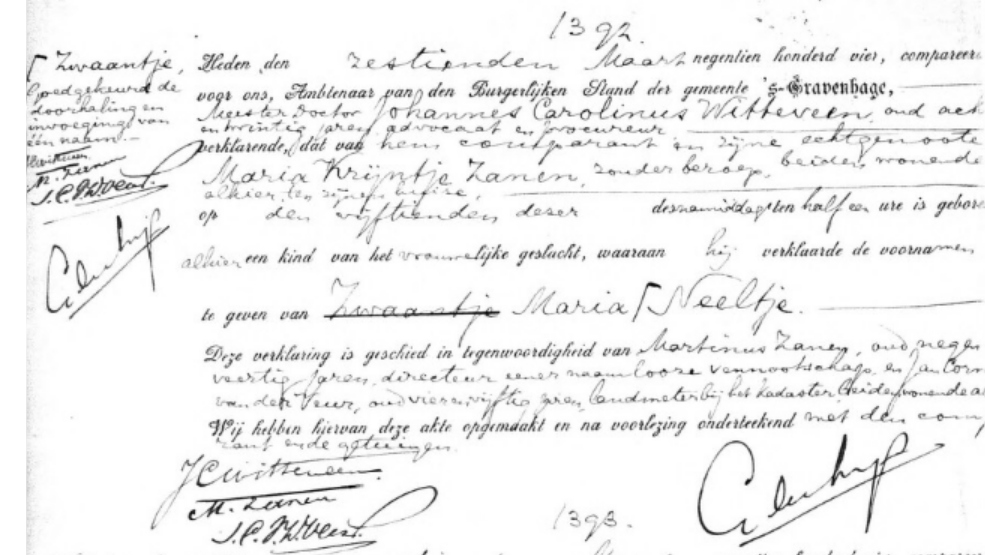 1392
⌈ Zwaantje,
Goedgekeurd de
doorhaling en
invoeging van
één naam.
JCWitteveen.
M. Zanen
Heden den zestienden Maart negentien honderd vier, compareer
voor ons, Ambtenaar van den Burgerlijken Stand der gemeente 's-Gravenhage,
Meester Doctor Johannes Carolinus Witteveen, oud ach
entwintig jaren, advocaat en procureur
verklarende, dat van hem comparant en zijne echtgenoote
Maria Krijntje Zanen, zonder beroep, beiden wonende
alhier, ten zijnen huize,
op den vijftienden dezer des namiddags ten half een ure is gebore
alhier een kind van het vrouwelijke geslacht, waaraan hij verklaarde de voornamen
te geven van ~~Zwaantje~~ Maria ⌈ Neeltje.
Deze verklaring is geschied in tegenwoordigheid van Martinus Zanen, oud negen
veertig jaren, directeur eener naamlooze vennootschap, en Jan Corn
van der Veur, oud vier en vijftig jaren, landmeter bij het kadaster, beiden wonende a
Wij hebben hiervan deze akte opgemaakt en na voorlezing onderteekend met den com
rant en de getuigen.
JCWitteveen.
M. Zanen
1393.